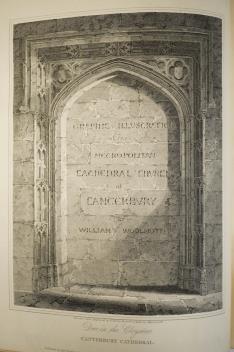 GRAPHIC ILLUSTRATIONS
of the
METROPOLITAN
CATHEDRAL CHURCH
of
CANTERBURY
WILLIAM WOOLNOTH
Door in the Cloysters
CANTERBURY CATHEDRAL.